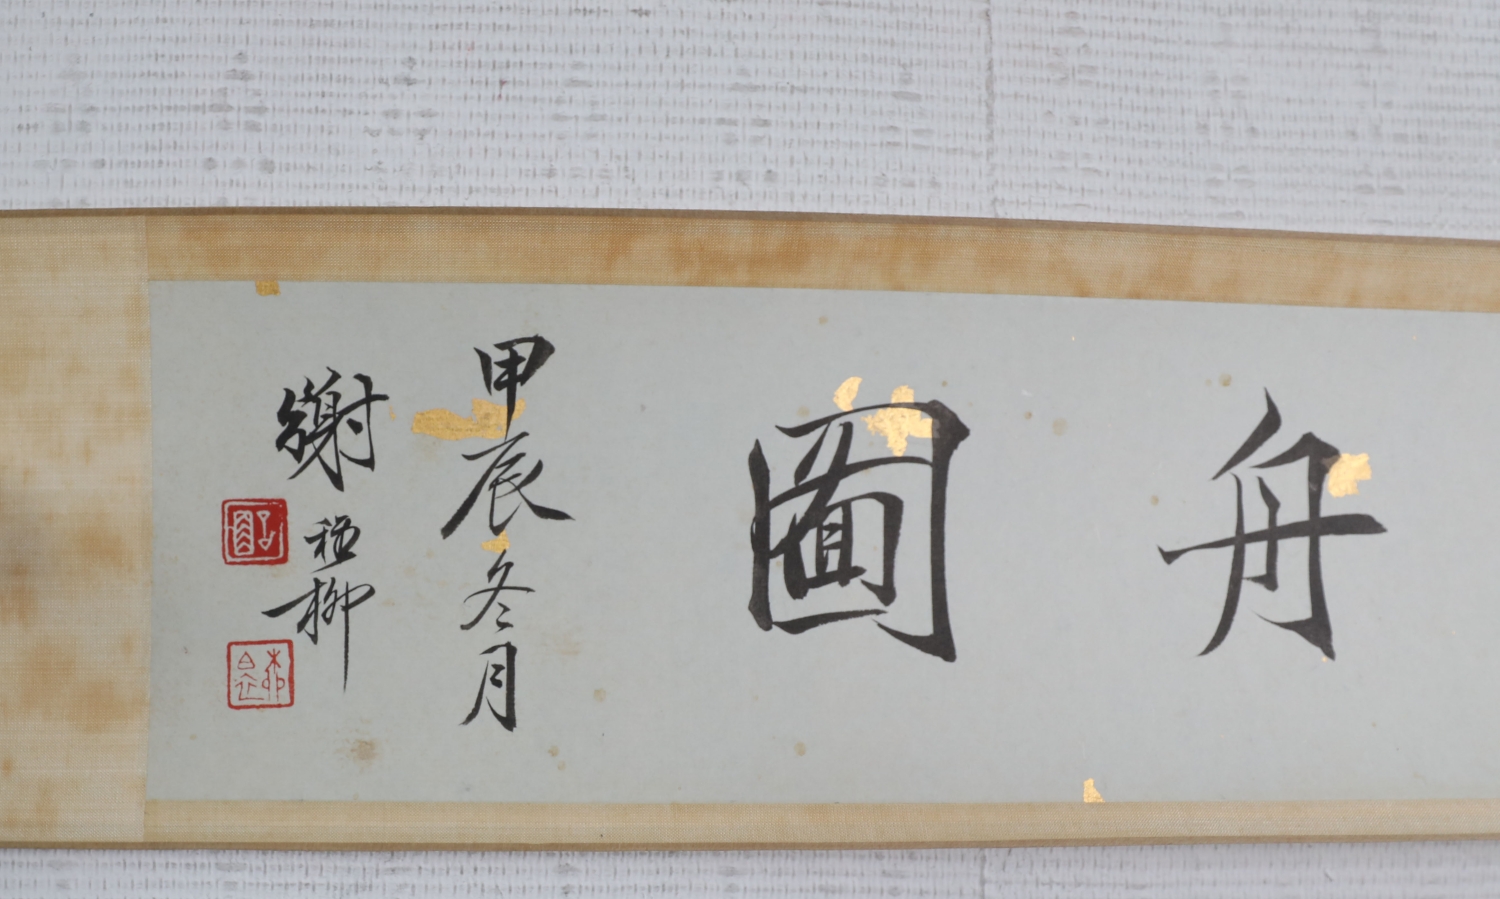 舟
圖
甲辰冬月
謝稚柳